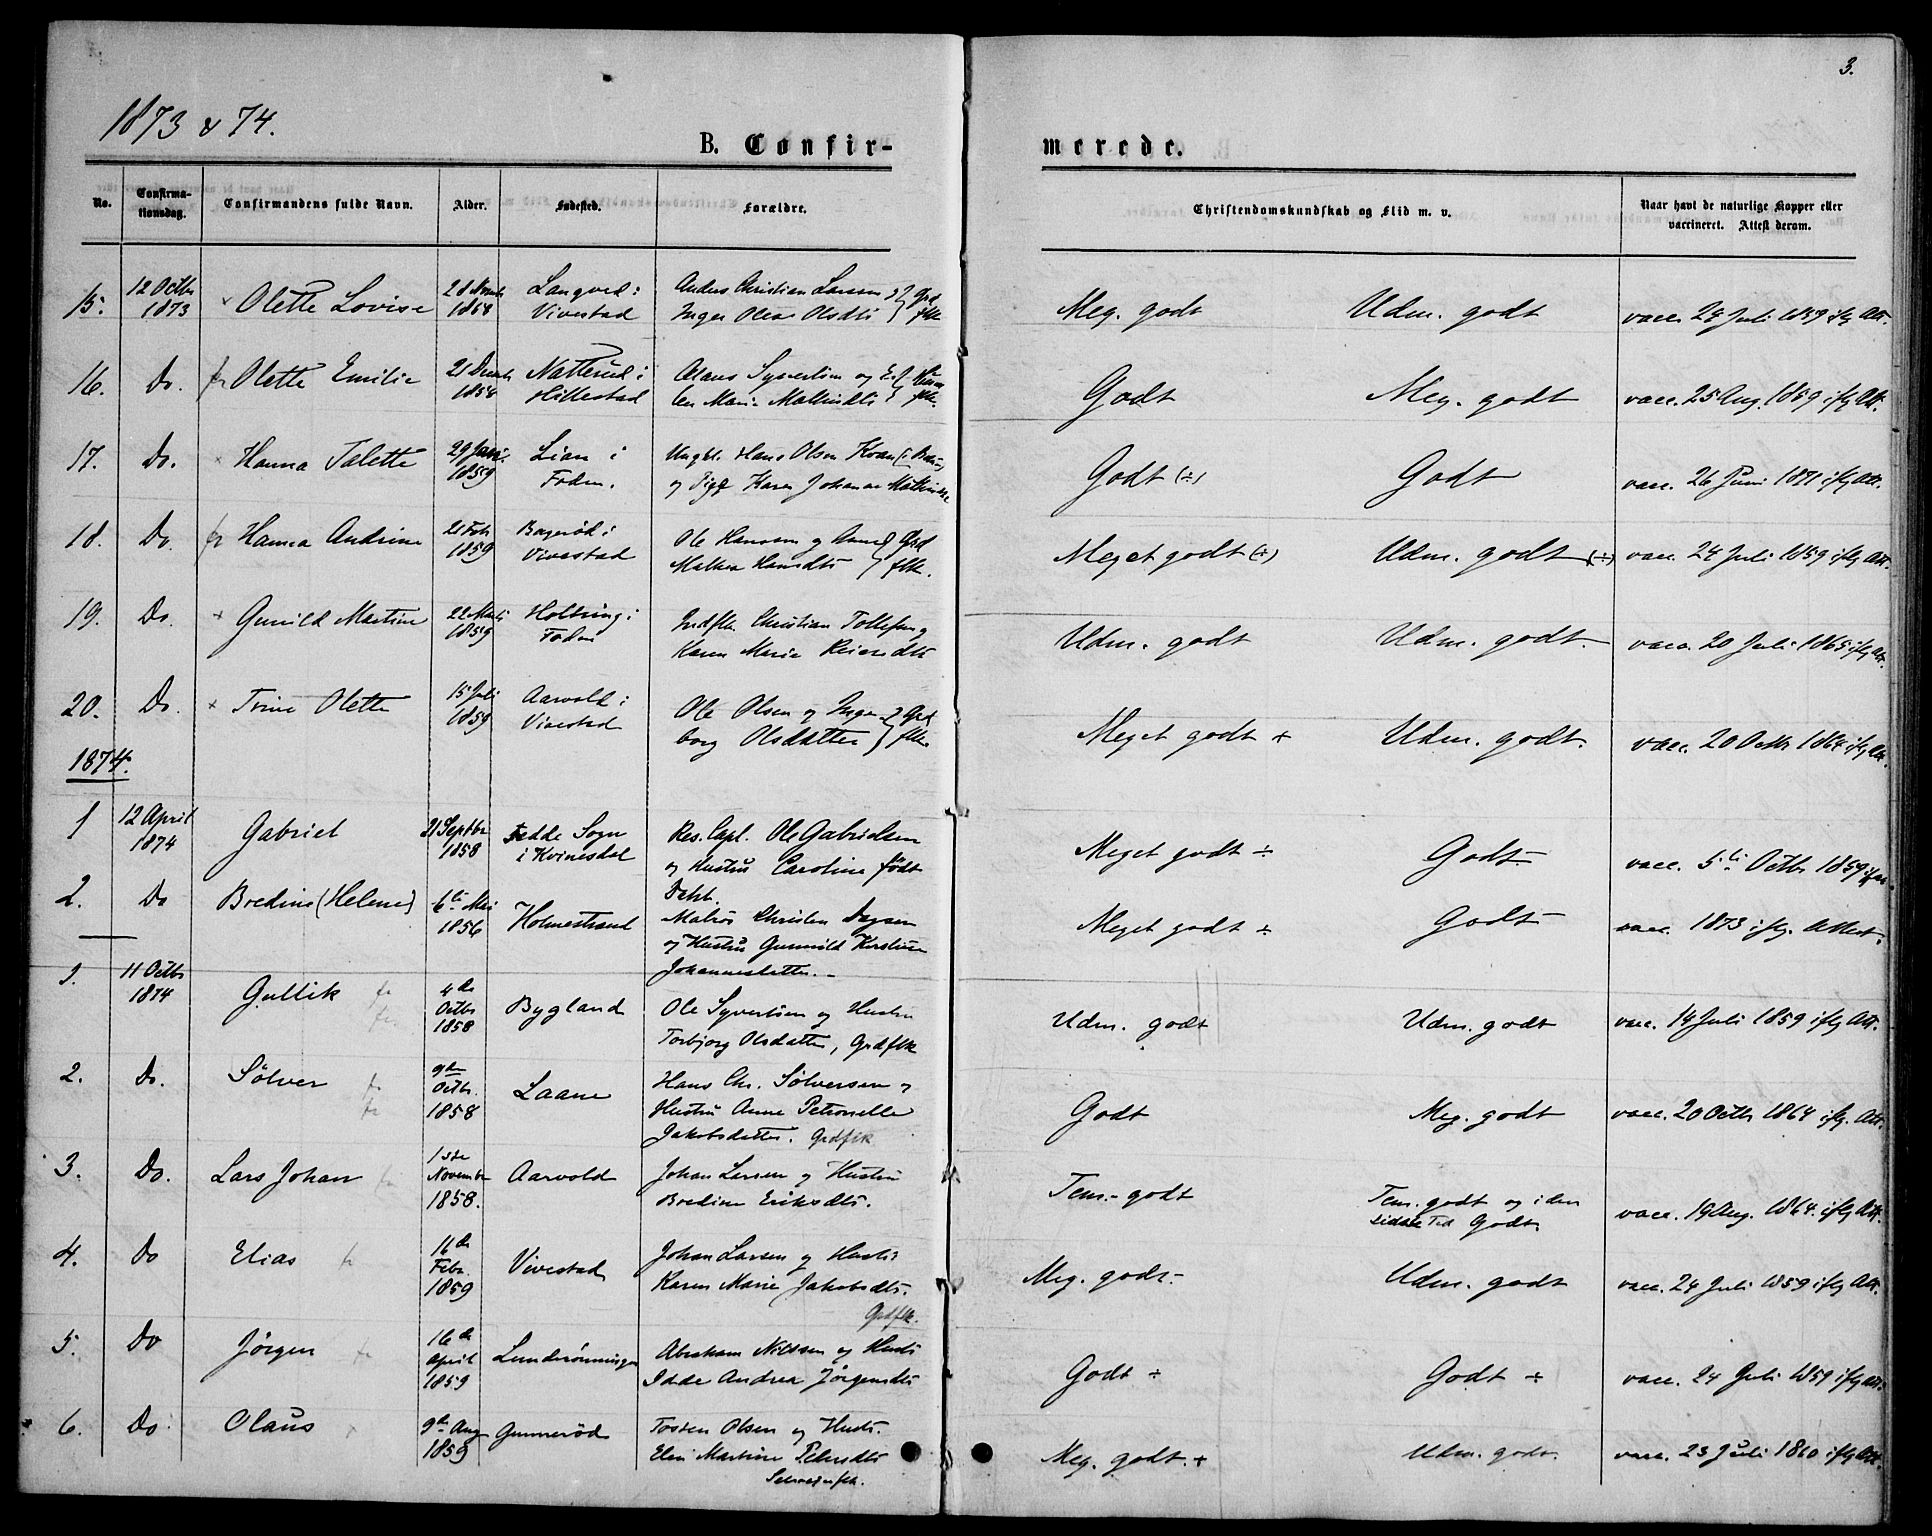 3.
1873 & 74.
B. Confir-
merede.
No.
Confirma-
tionsdag.
Confirmandens fulde Navn.
Alder.
Indested.
Forældre.
Christendomskundskab og Flid m. v.
Naar havt de naturlige Kopper eller
vaccineret. Attest derom.
15. 12 Octbr 1873 Olette Lovise 1858 Langved i Vivestad Anders Christian Larsen Inger Olea Olsdtr Grd flk Meg. godt Udm. godt vacc. 24 Juli 1859 iflg Att.
16. Do. Olette Emilie 21 Decmbr 1858 Natterud i Hillestad Olaus Syvertsen og El. len Marie Mathisdtr Meg. godt Godt vacc. 25 Aug. 1869 iflg Att.
17. Do. Hanna Talette 29 Janr. 1859 Lian i Fodm. Ungkl. Hans Olsen og Pige Karen Johanne Godt (÷) Godt vacc. 26 Juni 1871 iflg Att.
18. Do. fr Hanna Andrine 21 Febr 1859 Bagerød i Vivestad Ole Hansen og Anne Mathea Hansdtr Grd flk. Meget godt (÷) Udm. godt (÷) vacc. 24 Juli 1859 iflg Att.
19. Do. Gunild Martine 22 Marts 1859 i Fodm Indflk. Christian Tollefsen og Karen Marie Reiersdtr Udm. godt Udm. godt. vacc. 20 Juli 1865 iflg Att.
20. Do. Trine Olette 15 Juli 1859 Aarvold i Vivestad Ole Olsen og Inge borg Olsdatter Grd flk. Meget godt ÷ Udm. godt. vacc. 20 Octbr 1864 iflg Att.
1874.
1 12 April 1874 Gabriel 21 Septbr 1858 Fedde Sogn i Kvinesdal Res. Capl. Ole Gabrielsen og Hustru Caroline født Dahl. Meget godt ÷ Godt vacc. 5te Octbr 1859
2. Do Bredine (Helene) 6te Mai 1856 Holmestrand Matros Christen og Hustru Gunnild Kirstine Johannesdatter. Meget godt ÷ Godt vacc. 1873 iflg. Attest.
1. 11 Octbr 1874 Gullik fr 4de Octbr 1858 Bygland Ole Syvertsen og Hustru Torbjørg Olsdatter, Grdflk Udm. godt Udm. godt vacc. 14 Juli 1859 iflg Att.
2. Do. Sölver fr 9de Octbr. 1858 Laane Hans Chr. Sölversen og Hustru Anne Petronelle Jakobsdatter. Grdflk Godt Meg. godt vacc. 20 Octbr 1864 iflg. Att.
3. Do. Lars Johan fr 1ste Novembr 1858. Aarvold Johan Larsen og Hustru Bredine Eriksdtr. Tem. godt Tem. godt og i den sidste Tid Godt vacc. 19 Aug. 1864. iflg Att.
4. Do Elias fr 16de Febr. 1859 Vivestad Johan Larsen og Hustru Karen Marie Jakobsdtr. Grdflk. Meg. godt. Udm. godt vacc. 24 Juli 1859 iflg Att.
5. Do Jörgen fr 16de April 1859 Lunderönningen Abraham Nilssen og Hustr Idde Andrea Jörgensdtr Godt ÷ Godt ÷ vacc. 24 Juli 1859 iflg Att.
6. Do Olaus 9de Aug 1859 Gunneröd Tosten Olsen og Hustr. Elen Martine Pedersdtr Selveierflk. Meg. godt. + Udm. godt. vacc. 23 Juli 1860 iflg Att.